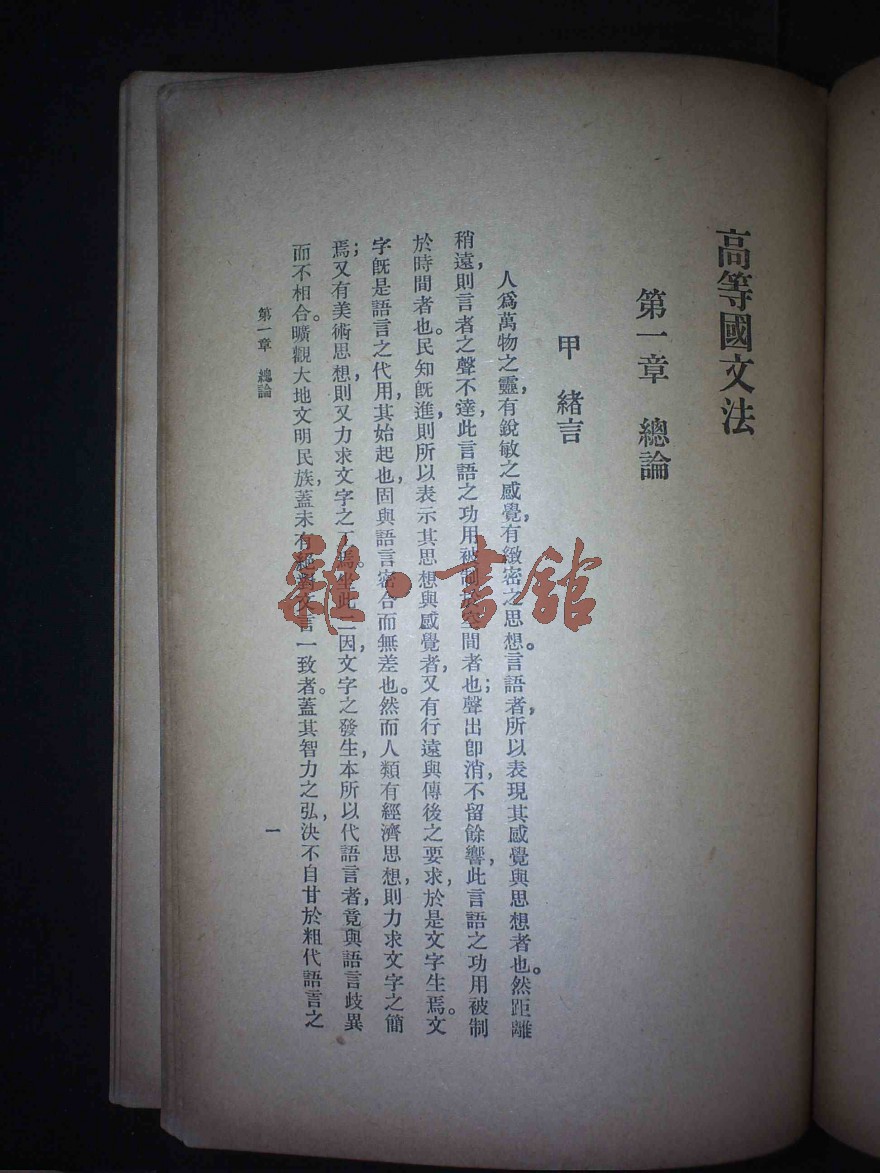 高等國文法
第一章　總論
甲　緒言
人爲萬物之靈，有銳敏之感覺，有緻密之思想。言語者，所以表現其感覺與思想者也。然距離
稍遠，則言者之聲不達，此言語之功用被制於空間者也；聲出卽消，不留餘響，此言語之功用被制
於時間者也。民知旣進，則所以表示其思想與感覺者，又有行遠與傳後之要求，於是文字生焉。文
字旣是語言之代用，其始起也，固與語言密合而無差也。然而人類有經濟思想，則力求文字之簡
焉；又有美術思想，則又力求文字之工焉。坐此二因，文字之發生，本所以代語言者，竟與語言歧異
而不相合。曠觀大地文明民族，蓋未有絕對文言一致者。蓋其智力之弘，決不自甘於粗代語言之
第一章　總論
一
雜·書館